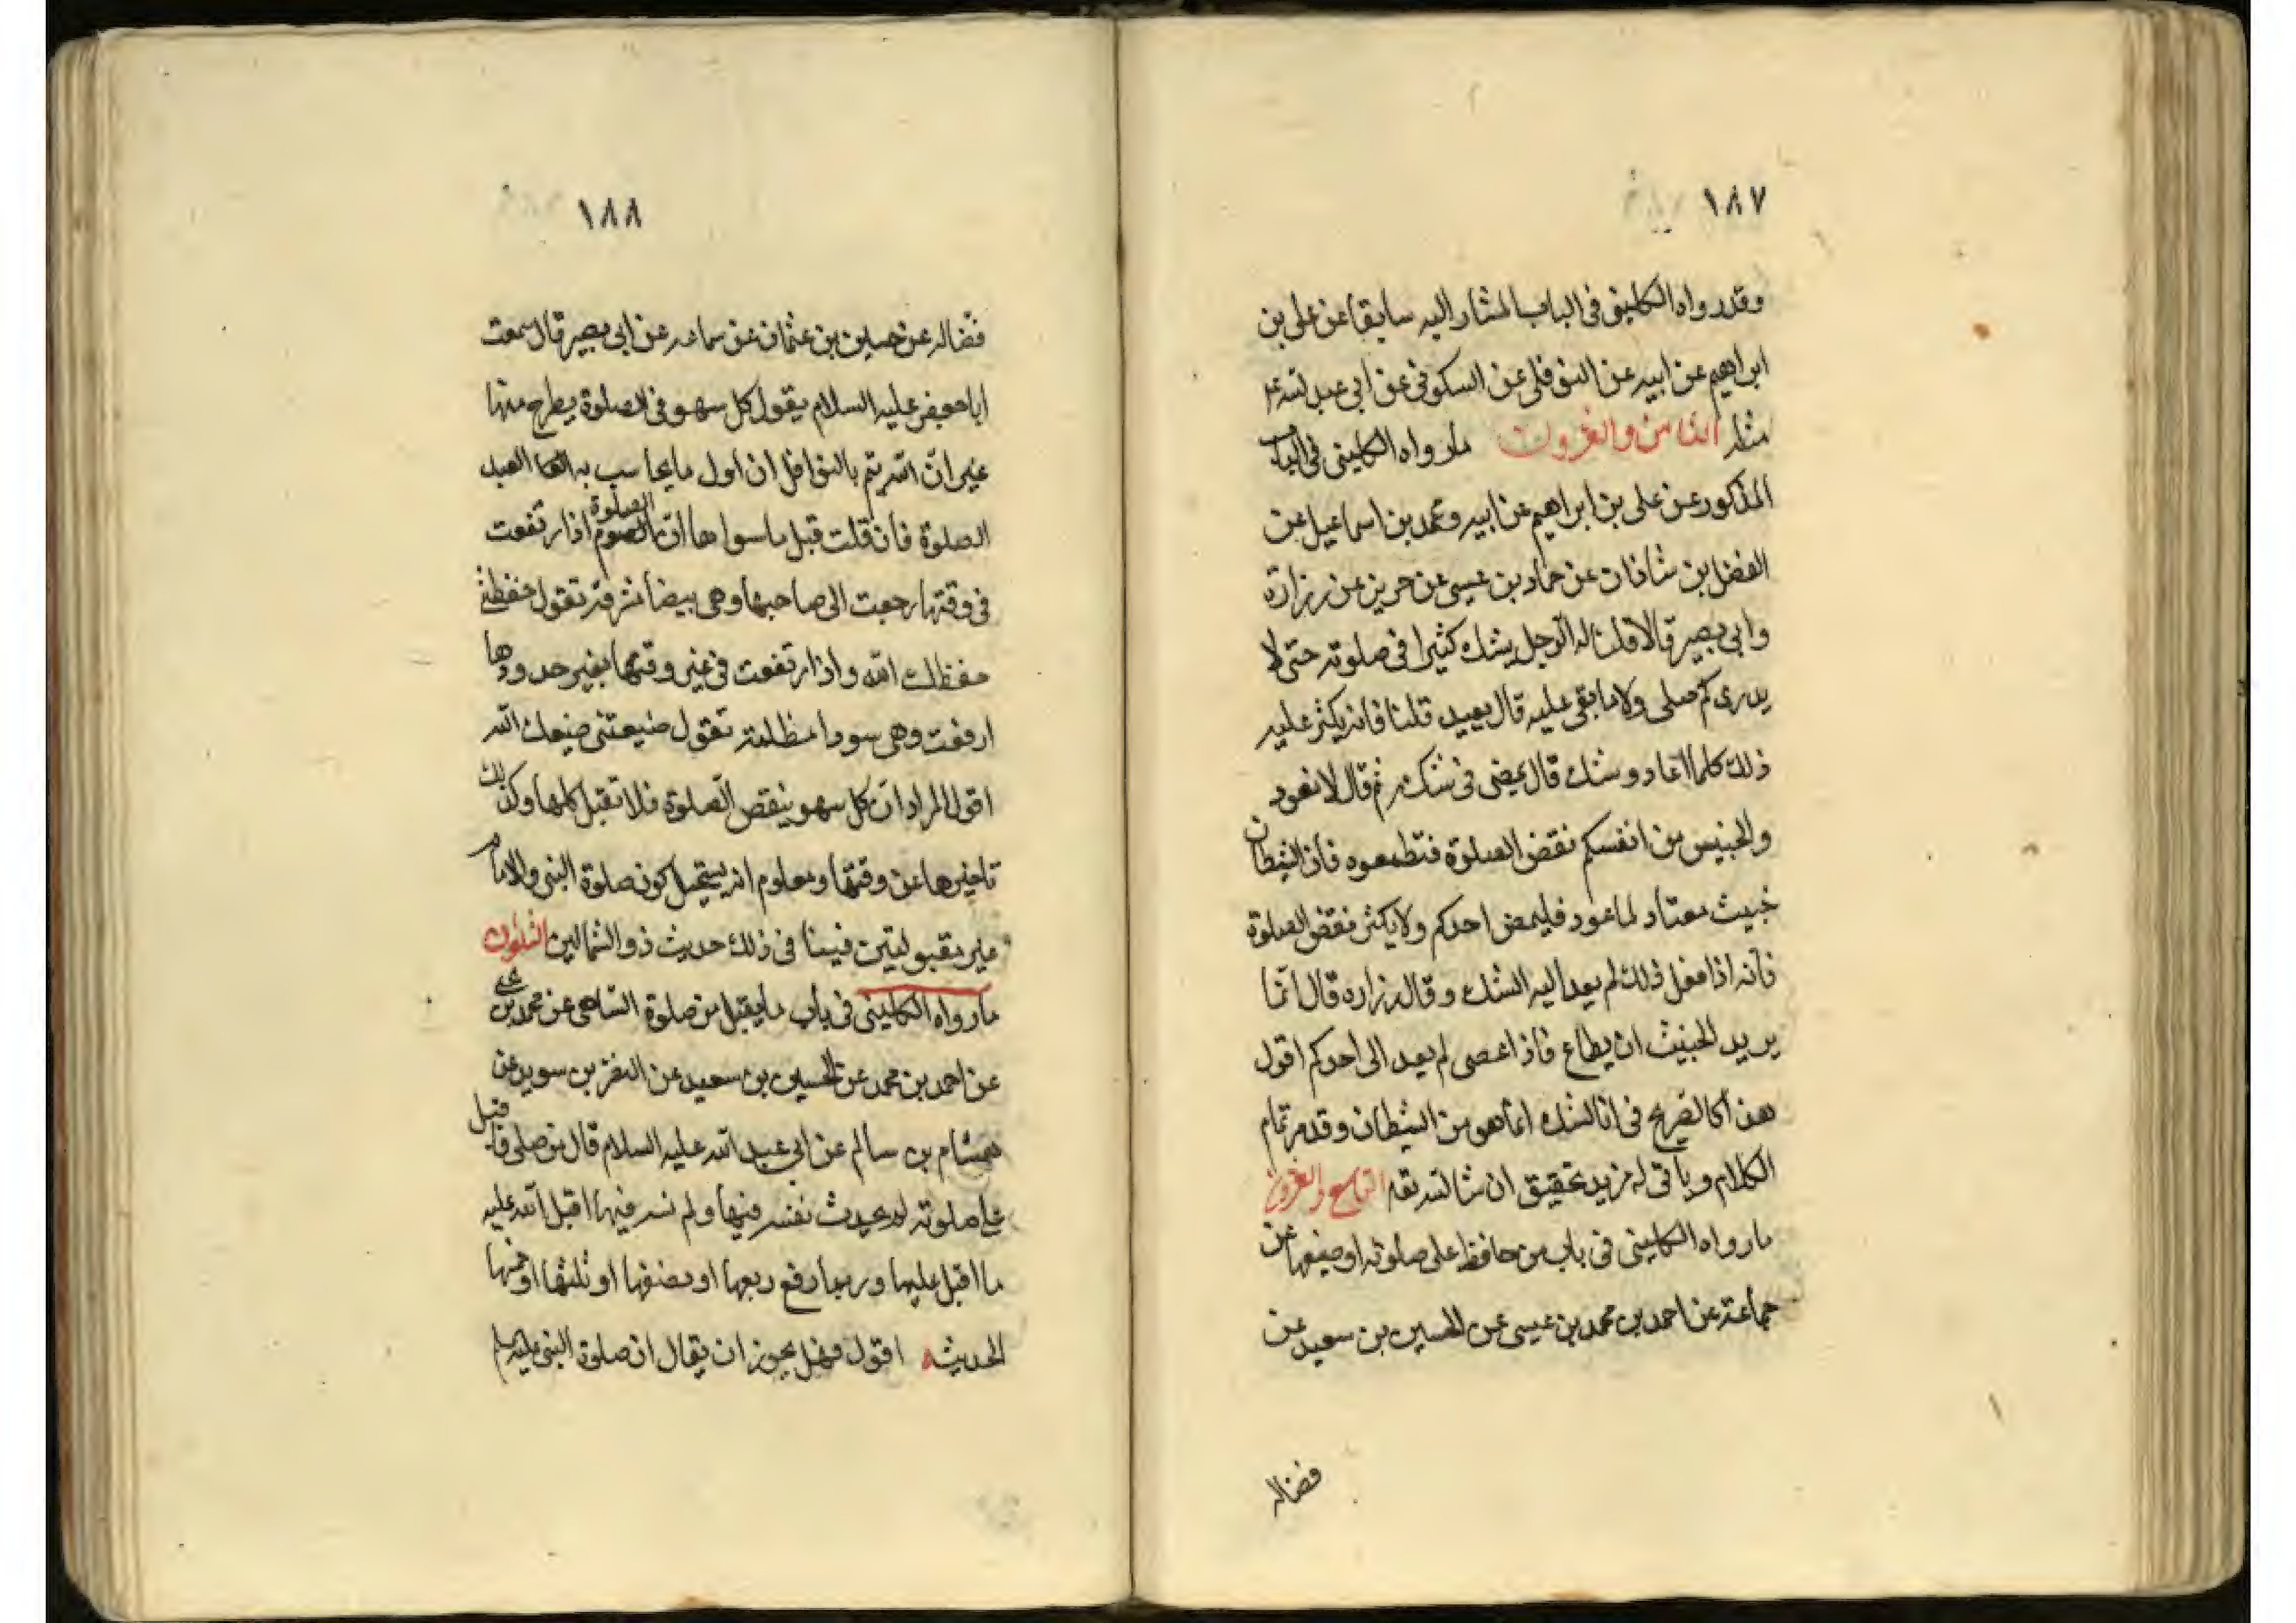 ١٨٧
وقد رواه الكليني في الباب المشار اليه سابقا عن علي بن
ابراهيم عن ابيه عن النوفلي عن السكوني عن ابي عبد الله ع
مثله الثامن والعشرون ما رواه الكليني في الباب
المذكور عن علي بن ابراهيم عن ابيه ومحمد بن اسماعيل عن
الفضل بن شاذان عن حماد بن عيسى عن حريز عن زرارة
وابي بصير قالا قلنا له الرجل يشك كثيرا في صلوته حتى لا
يدري كم صلى ولا ما بقي عليه قال يعيد قلنا فانه يكثر عليه
ذلك كلما اعاد وشك قال يمضي في شكه ثم قال لا تعود
والخبيس من انفسكم نقض الصلوة فتطمعوه فان الشيطان
خبيث معتاد لما عود فليمض احدكم ولا يكثر نقض الصلوة
فانه اذا فعل ذلك لم يعد اليه الشك وقال زراره قال انما
يريد الخبيث ان يطاع فاذا عصى لم يعد الى احدكم اقول
هذا كالصريح في ان الشك انما هو من الشيطان وقد مر تمام
الكلام وياتي له مزيد تحقيق ان شا الله تعا التاسع والعشرون
ما رواه الكليني في باب من حافظ على صلوته او ضيعها عن
جماعة عن احمد بن محمد بن عيسى عن الحسين بن سعيد عن
فضاله
١٨٨
فضاله عن حسين بن عثمان عن سماعه عن ابي بصير قال سمعت
ابا جعفر عليه السلام يقول كل سهو في الصلوة يطرح منها
غير ان الله يتم بالنوافل ان اول ما يحاسب به العبد
الصلوة فان قلت قبل ما سواها ان الصلوة اذا ارتفعت
في وقتها رجعت الى صاحبها وهي بيضا مشرقة تقول حفظتني
حفظك الله واذا ارتفعت في غير وقتها بغير حدودها
ارفعت وهي سودا مظلمة تقول ضيعتني ضيعك الله
اقول المراد ان كل سهو ينقص الصلوة فلا تقبل كلها وكذلك
تاخيرها عن وقتها ومعلوم انه يستحيل كون صلوة النبي والامام
غير مقبولتين فينا في ذلك حديث ذو الشمالين الثلثون
ما رواه الكليني في باب ما يقبل من صلوة الساهي عن محمد بن يحيى
عن احمد بن محمد عن الحسين بن سعيد عن النضر بن سويد عن
هشام بن سالم عن ابي عبد الله عليه السلام قال من صلى فاقبل
على صلوته لم يحدث نفسه فيها ولم يسه فيها اقبل الله عليه
ما اقبل عليها وربما رفع ربعها او نصفها او ثلثها او خمسها
الحديث اقول فهل يجوز ان يقال ان صلوة النبي عليه السلم